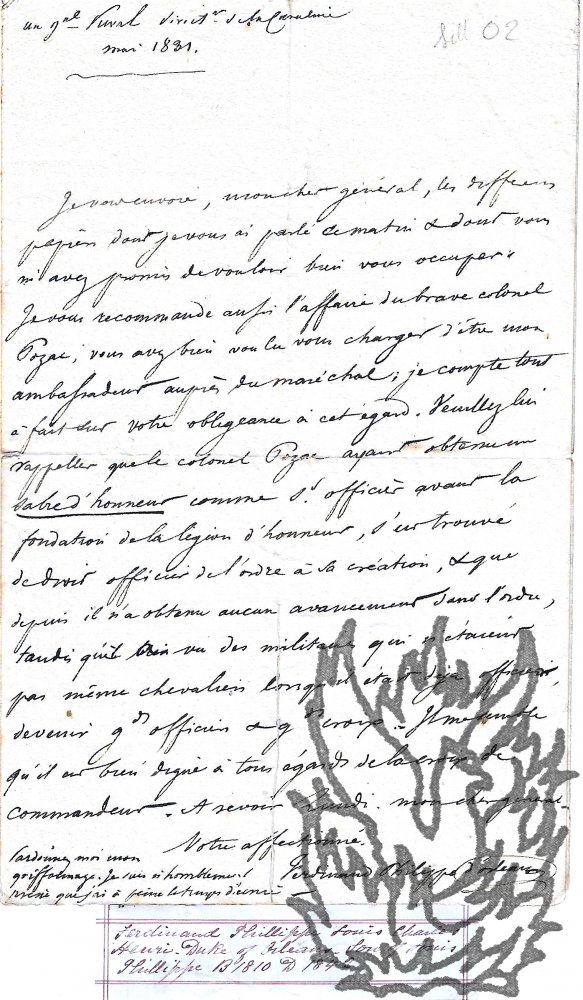 au gal Duval directr de la Cavalerie
mai 1831.
Sill 02
Je vous envoie, mon cher général, les différens
papiers dont je vous ai parlé ce matin & dont vous
m'avez promis de vouloir bien vous occuper.
Je vous recommande aussi l'affaire du brave colonel
Pozac; vous avez bien voulu vous charger d'être mon
ambassadeur auprès du maréchal; je compte tout
à fait sur votre obligeance à cet égard. Veuillez lui
rappeller que le colonel Pozac ayant obtenu un
sabre d'honneur comme s.s officier avant la
fondation de la légion d'honneur, s'est trouvé
de droit officier de l'ordre à sa création, & que
depuis il n'a obtenu aucun avancement dans l'ordre,
tandis qu'il a vu des militaires qui n'étaient
pas même chevaliers lorsqu'il était déjà officier,
devenir gds officiers & gds croix. Il me semble
qu'il est bien digne à tous égards de la croix de
commandeur. A revoir Lundi mon cher général
Votre affectionné.
Ferdinand Philippe d'orléans
Pardonnez moi mon
griffonnage. Je suis si horriblement
pressé que j'ai à peine le temps d'écrire
Ferdinand Phillippe Louis Charles
Henri. Duke of Orleans Son of Louis
Phillippe B 1810 D 1842